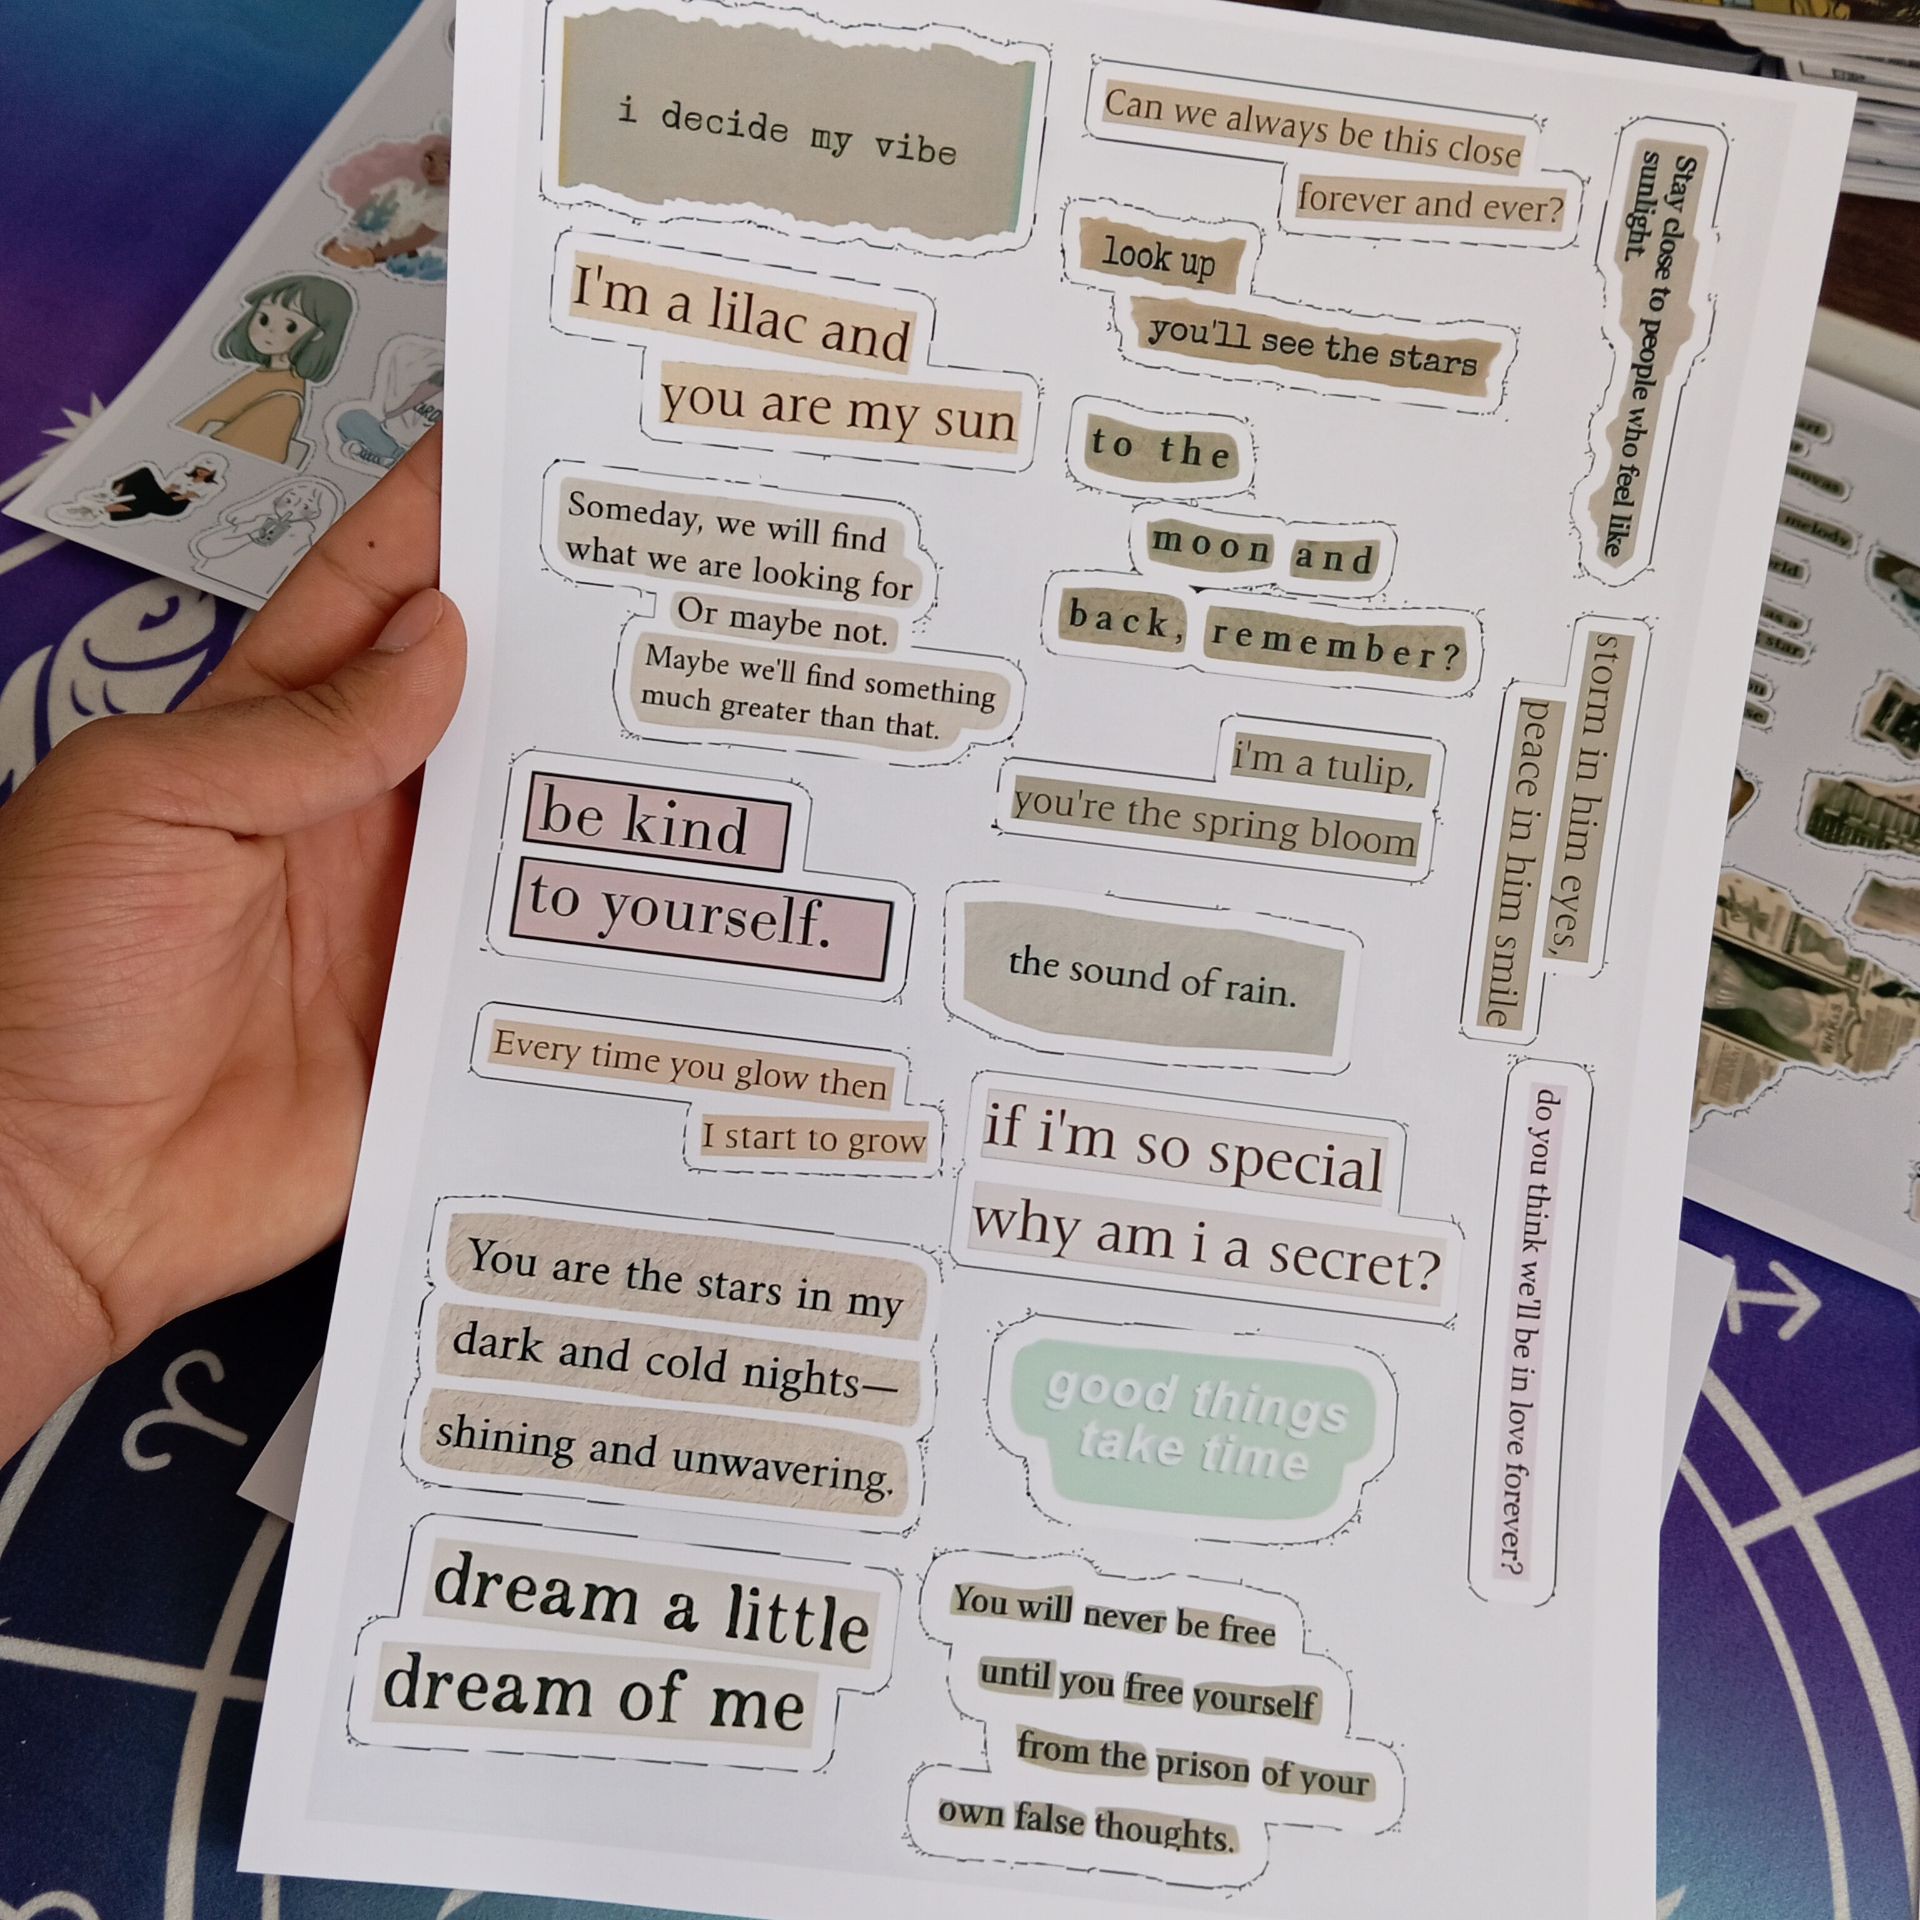 i decide my vibe
Can we always be this close
forever and ever?
Stay close to people who feel like
sunlight.
look up
you'll see the stars
I'm a lilac and
you are my sun
to the
moon and
back, remember?
Someday, we will find
what we are looking for
Or maybe not.
Maybe we'll find something
much greater than that.
storm in him eyes,
peace in him smile
i'm a tulip,
you're the spring bloom
be kind
to yourself.
the sound of rain.
Every time you glow then
I start to grow
if i'm so special
why am i a secret?
do you think we'll be in love forever?
You are the stars in my
dark and cold nights—
shining and unwavering.
good things
take time
dream a little
dream of me
You will never be free
until you free yourself
from the prison of your
own false thoughts.
melody
as a
star